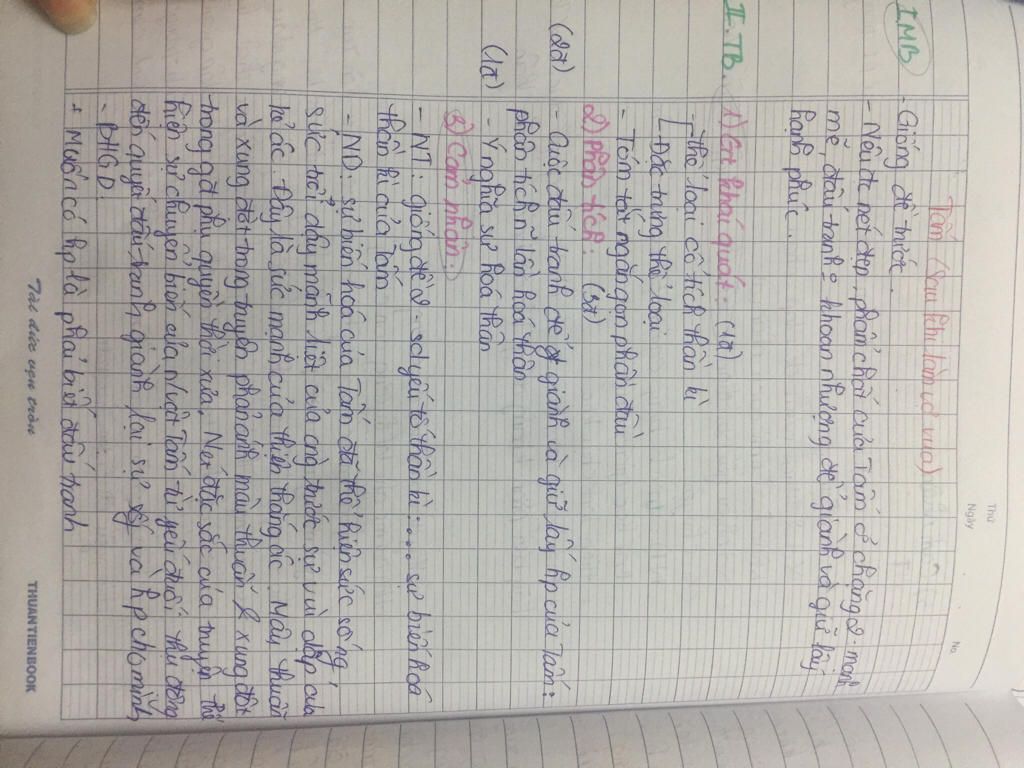 Thứ
Ngày
No
Tấm (sau khi làm vợ vua)
I. MB
- Giống đề trước.
- Nêu đc nét đẹp, phẩm chất của Tấm ở chặng 2: mạnh
mẽ, đấu tranh = khoan nhượng để giành và giữ lấy
hạnh phúc.
II. TB.
1) Gt khái quát. (1đ)
- Thể loại cổ tích thần kì
- Đặc trưng thể loại
- Tóm tắt ngắn gọn phần đầu
2) Phân tích: (3đ)
(2đ) - Cuộc đấu tranh để giành và giữ lấy hp của Tấm:
phân tích ~ lần hoá thân
(1đ) - Ý nghĩa sự hoá thân
3) Cảm nhận.
- NT: giống đề 2 - yếu tố thần kì: .... sự biến hoá
thần kì của Tấm
- ND: sự biến hoá của Tấm đã thể hiện sức sống
sức trỗi dậy mãnh liệt của cng trước sự vùi dập của
kẻ ác. Đây là sức mạnh của thiện thắng ác. Mâu thuẫn
và xung đột trong truyện phản ánh mâu thuẫn & xung đột
trong gđ phụ quyền thời xưa. Nét đặc sắc của truyện thể
hiện sự chuyển biến của nhvật Tấm từ yếu đuối thụ động
đến quyết đấu tranh giành lại sự sống và hp cho mình
- BHGD.
+ Muốn có hp là phải biết đấu tranh
Tài đức vẹn toàn
THUANTIENBOOK